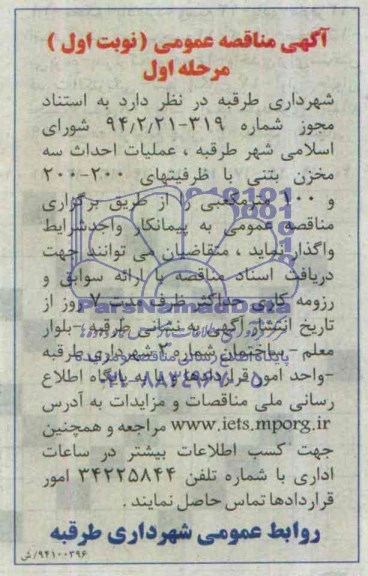 آگهی مناقصه عمومی (نوبت اول)
مرحله اول
شهرداری طرقبه در نظر دارد به استناد
مجوز شماره ۳۱۹-۹۴/۲/۲۱ شورای
اسلامی شهر طرقبه ، عملیات احداث سه
مخزن بتنی با ظرفیتهای ۲۰۰-۲۰۰
و ۱۰۰ مترمکعبی را از طریق برگزاری
مناقصه عمومی به پیمانکار واجدشرایط
واگذار نماید ، متقاضیان می توانند جهت
دریافت اسناد مناقصه با ارائه سوابق و
رزومه کاری حداکثر ظرف مدت ۷ روز از
ParsNamadData
تاریخ انتشار آگهی به نشانی طرقبه -بلوار
معلم - ساختمان شماره ۲ شهرداری طرقبه
-واحد امور قراردادها و یا به پایگاه اطلاع
۰۲۱-۸۸۳۴۹۶۷۰-۵
رسانی ملی مناقصات و مزایدات به آدرس
www.iets.mporg.ir مراجعه و همچنین
جهت کسب اطلاعات بیشتر در ساعات
اداری با شماره تلفن ۳۴۲۲۵۸۴۴ امور
قراردادها تماس حاصل نمایند .
روابط عمومی شهرداری طرقبه
۹۴۱۰۰۳۹۶/ش